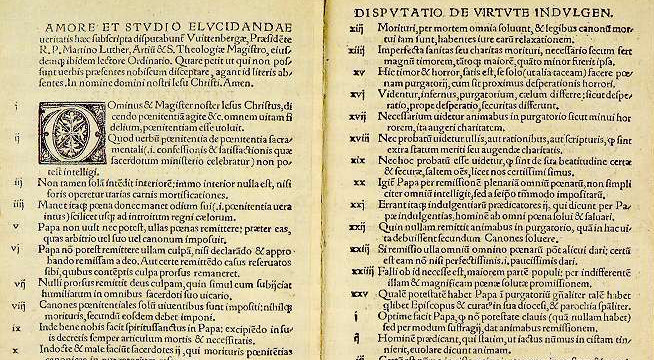 AMORE ET STVDIO ELVCIDANDAE
ueritatis hæc subscripta disputabunt̃ Vuittenbergæ, Præsidẽte
R. P. Martino Luther, Artiũ & S. Theologiæ Magistro, eius-
demq; ibidem lectore Ordinario. Quare petit ut qui non pos-
sunt uerbis præsentes nobiscum disceptare, agant id literis ab-
sentes. In nomine domini nostri Iesu Christi. Amen.
i Ominus & Magister noster Iesus Christus, di
cendo pœnitentiã agite &c. omnem uitam fi
delium, pœnitentiam esse uoluit.
ij Quod uerbũ pœnitentia de pœnitentia sacra-
mentali (.i. confessionis & satisfactionis quæ
sacerdotum ministerio celebratur) non po-
test intelligi.
iij Non tamen solã intẽdit interiorẽ; immo interior nulla est, nisi
foris operetur uarias carnis mortificationes.
iiij Manet itaq; pœna donec manet odium sui (.i. pœnitentia uera
intus) scilicet usq; ad introitum regni cælorum.
v Papa non uult nec potest, ullas pœnas remittere; præter eas,
quas arbitrio uel suo uel canonum imposuit.
vj Papa nõ potest remittere ullam culpã, nisi declarãdo & appro-
bando remissam a deo. Aut certe remittẽdo casus reseruatos
sibi, quibus contẽptis culpa prorsus remaneret.
vij Nulli prorsus remittit deus culpam, quin simul eum subijciat
humiliatum in omnibus sacerdoti suo uicario.
viij Canones pœnitentiales solũ uiuentibus sunt impositi; nihilq;
morituris, secundũ eosdem debet imponi.
ix Inde bene nobis facit spiritussanctus in Papa; excipiẽdo in su-
is decretis semper articulum mortis & necessitatis.
x Indocte & male faciũt sacerdotes ij, qui morituris pœnitẽtias
DISPVTATIO DE VIRTVTE INDVLGEN.
xiij Morituri, per mortem omnia soluunt, & legibus canonũ mor-
tui iam sunt, habentes iure earũ relaxationem.
xiiij Imperfecta sanitas seu charitas morituri, necessario secum fert
magnũ timorem, tãtoq; maiorẽ, quãto minor fuerit ipsa.
xv Hic timor & horror, satis est, se solo (ut alia taceam) facere pœ-
nam purgatorij, cum sit proximus desperationis horrori.
xvj Videntur, infernus, purgatorium, cælum differre; sicut despe-
ratio, prope desperatio, securitas differunt.
xvij Necessarium uidetur animabus in purgatorio sicut minui hor-
rorem, ita augeri charitatem.
xviij Nec probatũ uidetur ullis, aut rationibus, aut scripturis, ꝙ sint
extra statum meriti seu augendæ charitatis.
xix Nec hoc probatũ esse uidetur, ꝙ sint de sua beatitudine certæ
& securæ, saltem oẽs, licet nos certissimi simus.
xx Igit̃ Papa per remissionẽ plenariã omniũ pœnarũ, non simpli
citer omniũ intelligit, sed a seipso tĩmodo impositarũ.
xxj Errant itaq; indulgentiarũ prædicatores ij, qui dicunt per Pa-
pæ indulgentias, hominẽ ab omni pœna solui & saluari.
xxij Quin nullam remittit animabus in purgatorio, quã in hac ui-
ta debuissent secundum Canones soluere.
xxiij Si remissio ulla omniũ omnino pœnarũ põt alicui dari; certũ
est eam nõ nisi perfectissimis .i. paucissimis dari.
xxiiij Falli ob id necesse est, maiorem partẽ populi; per indifferentẽ
illam & magnificam pœnæ solutæ promissionem.
xxv Qualẽ potestatẽ habet Papa ĩ purgatoriũ gñaliter talẽ habet
q̃libet Episcopus & curatꝰ in sua diocẽsi, & parochia spãliter.
i Optime facit Papa, ꝙ nõ potestate clauis (quã nullam habet)
sed per modum suffragij, dat animabus remissionem.
ij Hominẽ prædicant, qui statim, ut iactus nũmus in cistam tin-
nierit, euolare dicunt animam.